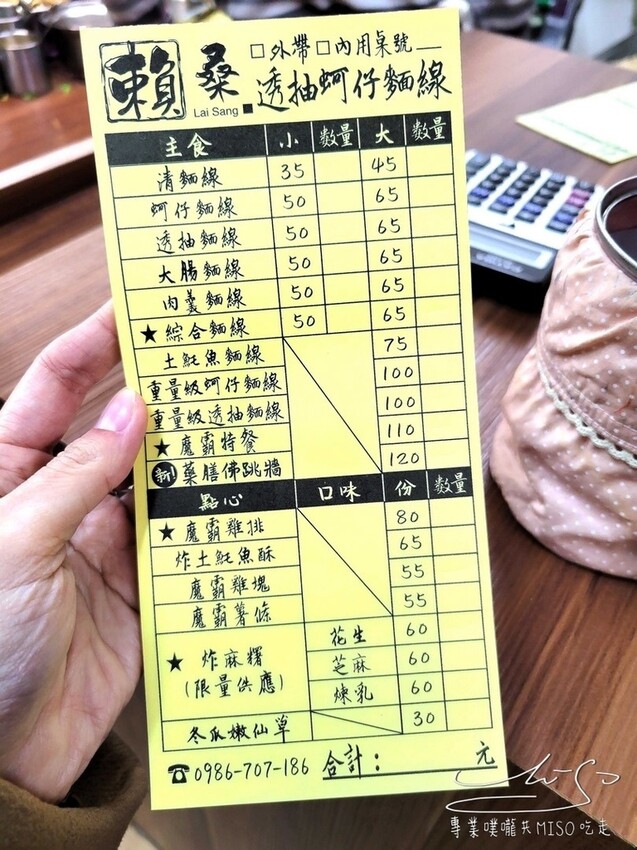 賴桑 □外帶□內用桌號__
Lai Sang ■透抽蚵仔麵線
主食 小 數量 大 數量
清麵線 35 45
蚵仔麵線 50 65
透抽麵線 50 65
大腸麵線 50 65
肉羹麵線 50 65
★綜合麵線 50 65
土魠魚麵線 75
重量級蚵仔麵線 100
重量級透抽麵線 100
★魔霸特餐 110
新!藥膳佛跳牆 120
點心 口味 份 數量
★魔霸雞排 80
炸土魠魚酥 65
魔霸雞塊 55
魔霸薯條 55
★炸麻糬 花生 60
(限量供應) 芝麻 60
煉乳 60
冬瓜嫩仙草 30
☎0986-707-186 合計: 元
專業噗嚨共MISO吃走